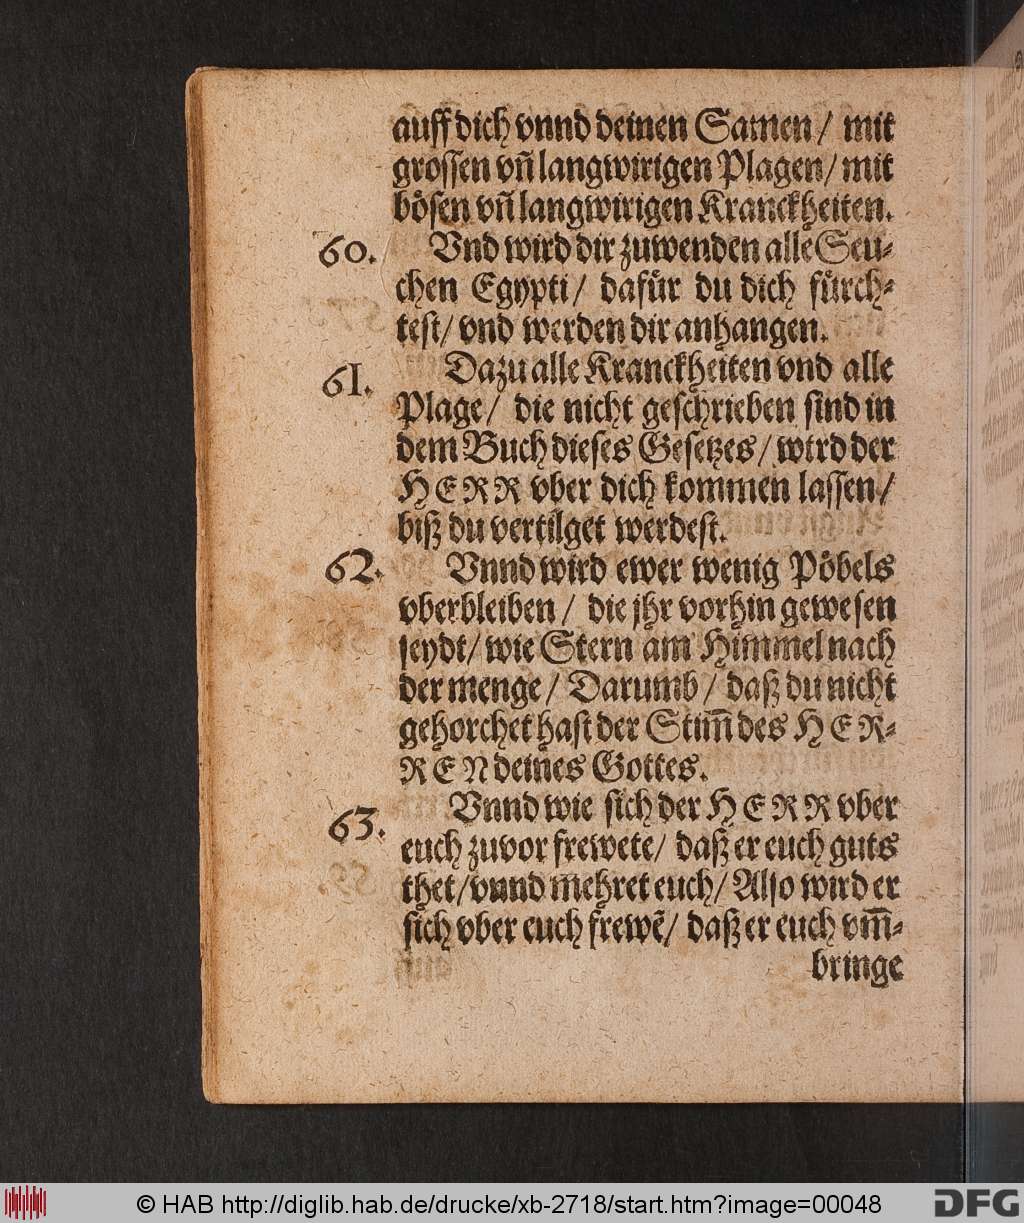 auff dich vnnd deinen Samen / mit
grossen vñ langwirigen Plagen / mit
bösen vñ langwirigen Kranckheiten.
60. Vnd wird dir zuwenden alle Seu-
chen Egypti / dafür du dich fürch-
test / vnd werden dir anhangen.
61. Dazu alle Kranckheiten vnd alle
Plage / die nicht geschrieben sind in
dem Buch dieses Gesetzes / wird der
HERR vber dich kommen lassen /
biß du vertilget werdest.
62. Vnnd wird ewer wenig Pöbels
vberbleiben / die jhr vorhin gewesen
seydt / wie Stern am Himmel nach
der menge / Darumb / daß du nicht
gehorchet hast der Stim̃ des HER-
REN deines Gottes.
63. Vnnd wie sich der HERR vber
euch zuvor frewete / daß er euch guts
thet / vnnd mehret euch / Also wird er
sich vber euch frewẽ / daß er euch vm̃-
bringe
© HAB http://diglib.hab.de/drucke/xb-2718/start.htm?image=00048
DFG